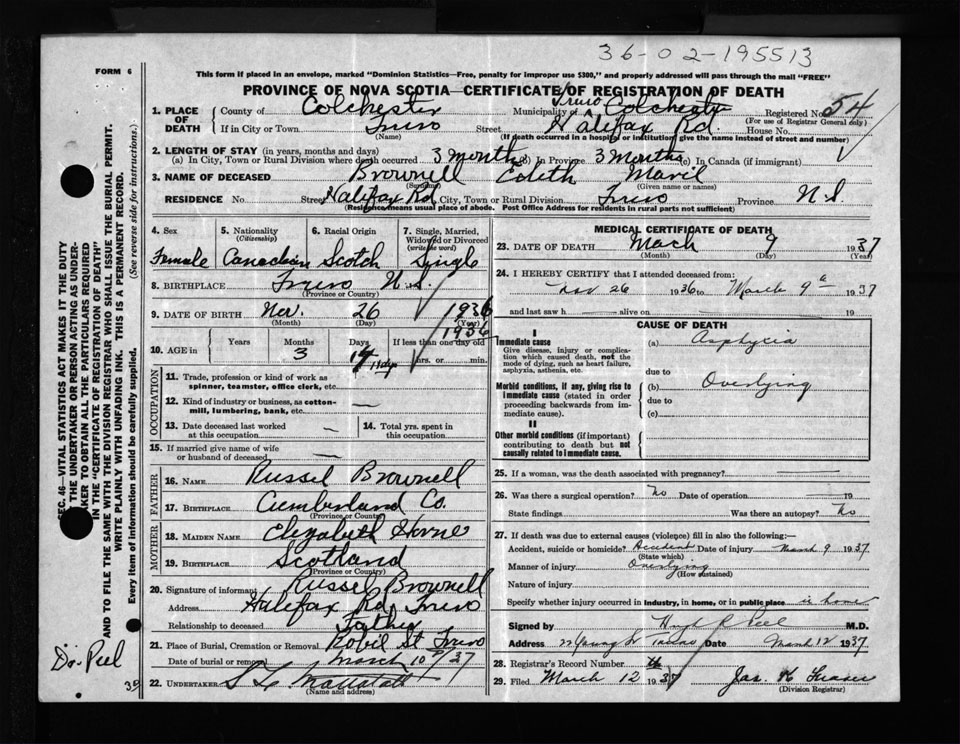 36-02-195513
FORM 6
This form if placed in an envelope, marked "Dominion Statistics—Free, penalty for improper use $300," and properly addressed will pass through the mail "FREE"
PROVINCE OF NOVA SCOTIA—CERTIFICATE OF REGISTRATION OF DEATH
1. PLACE OF DEATH County of Colchester Municipality of Truro Colchester Registered No. 54
(For use of Registrar General only)
If in City or Town Truro Street Halifax Rd. House No.
(Name) (If death occurred in a hospital or institution give the name instead of street and number)
2. LENGTH OF STAY (in years, months and days)
(a) In City, Town or Rural Division where death occurred 3 months (b) In Province 3 Months (c) In Canada (if immigrant)
3. NAME OF DECEASED Brownell Edith
(Surname) (Given name or names)
RESIDENCE No. Street Halifax Rd City, Town or Rural Division Truro Province N.S.
(Residence means usual place of abode. Post Office Address for residents in rural parts not sufficient)
4. Sex Female
5. Nationality (Citizenship) Canadian
6. Racial Origin Scotch
7. Single, Married, Widowed or Divorced (write the word) Single
8. BIRTHPLACE Truro N.S.
(Province or Country)
9. DATE OF BIRTH Nov. 26 1936
(Month) (Day) (Year)
1936
10. AGE in Years Months 3 Days 14 11 dys If less than one day old hrs. or min.
OCCUPATION
11. Trade, profession or kind of work as spinner, teamster, office clerk, etc.
12. Kind of industry or business, as cotton-mill, lumbering, bank, etc. —
13. Date deceased last worked at this occupation —
14. Total yrs. spent in this occupation
15. If married give name of wife or husband of deceased —
FATHER
16. NAME Russel Brownell
17. BIRTHPLACE Cumberland Co.
(Province or Country)
MOTHER
18. MAIDEN NAME Elizabeth Horne
19. BIRTHPLACE Scotland
(Province or Country)
20. Signature of informant Russel Brownell
Address Halifax Rd Truro
Relationship to deceased Father
21. Place of Burial, Cremation or Removal Robie St Truro
Date of burial or removal March 10 1937
22. UNDERTAKER
(Name and address)
MEDICAL CERTIFICATE OF DEATH
23. DATE OF DEATH Mach 9 1937
(Month) (Day) (Year)
24. I HEREBY CERTIFY that I attended deceased from:
Nov 26 1936 to March 9th 1937
and last saw h— alive on — 19
CAUSE OF DEATH
I
Immediate cause
Give disease, injury or complication which caused death, not the mode of dying, such as heart failure, asphyxia, asthenia, etc.
(a) Asphyxia
due to
Morbid conditions, if any, giving rise to immediate cause (stated in order proceeding backwards from immediate cause).
(b) Overlying
due to
(c)
II
Other morbid conditions (if important) contributing to death but not causally related to immediate cause.
25. If a woman, was the death associated with pregnancy? —
26. Was there a surgical operation? No Date of operation — 19
State findings Was there an autopsy? No
27. If death was due to external causes (violence) fill in also the following:—
Accident, suicide or homicide? Accident Date of injury March 9 1937
(State which)
Manner of injury Overlying
(How sustained)
Nature of injury
Specify whether injury occurred in industry, in home, or in public place in home
Signed by M.D.
Address Young St Truro Date March 12 1937
28. Registrar's Record Number
29. Filed March 12 1937 Jas.
(Division Registrar)
SEC. 46—VITAL STATISTICS ACT MAKES IT THE DUTY OF THE UNDERTAKER OR PERSON ACTING AS UNDERTAKER TO OBTAIN ALL THE PARTICULARS REQUIRED IN THE "CERTIFICATE OF REGISTRATION OF DEATH"
AND TO FILE THE SAME WITH THE DIVISION REGISTRAR WHO SHALL ISSUE THE BURIAL PERMIT.
WRITE PLAINLY WITH UNFADING INK. THIS IS A PERMANENT RECORD.
Every item of information should be carefully supplied. (See reverse side for instructions.)
Dr. Peel
35